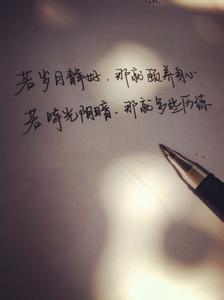 若岁月静好，那就颐养身心
若时光阴暗，那就多些历练